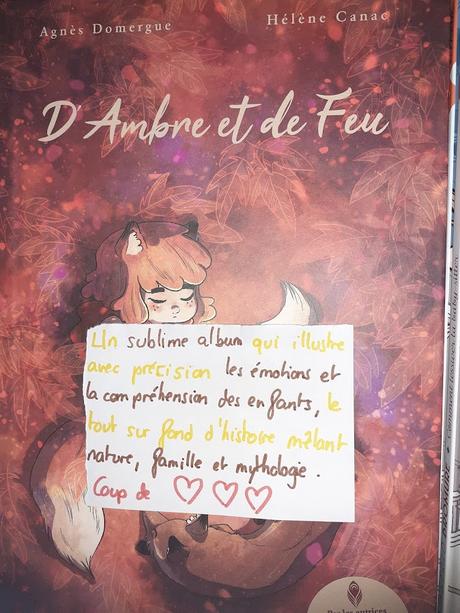 Agnès Domergue
Hélène Canac
D'Ambre et de Feu
Un sublime album qui illustre
avec précision les émotions et
la compréhension des enfants, le
tout sur fond d'histoire mêlant
nature, famille et mythologie.
Coup de ♡♡♡